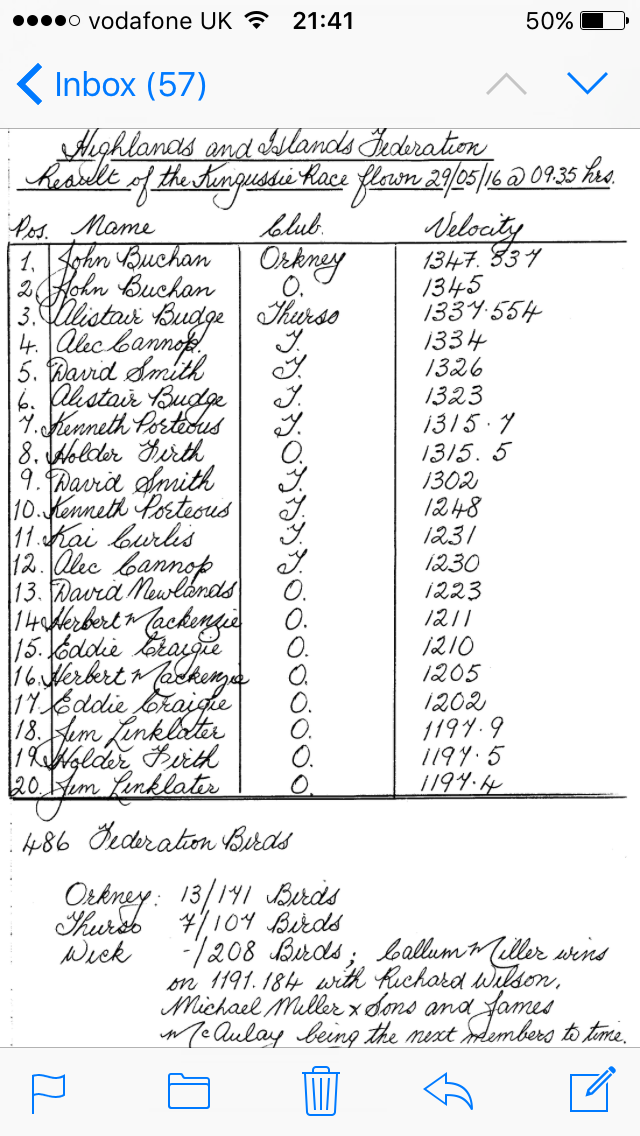 vodafone UK 21:41 50%
Inbox (57)
Highlands and Islands Federation
Result of the Kingussie Race flown 29/05/16 @ 09.35 hrs.
Pos. Name Club. Velocity
1. John Buchan Orkney 1347.837
2. John Buchan O. 1345
3. Alistair Budge Thurso 1337.554
4. Alec Cannop. T. 1334
5. David Smith T. 1326
6. Alistair Budge T. 1323
7. Kenneth Porteous T. 1315.7
8. Holder Firth O. 1315.5
9. David Smith T. 1302
10. Kenneth Porteous T. 1248
11. Kai Curtis T. 1231
12. Alec Cannop T. 1230
13. David Newlands O. 1223
14. Herbert Mackenzie O. 1211
15. Eddie Craigie O. 1210
16. Herbert Mackenzie O. 1205
17. Eddie Craigie O. 1202
18. Jim Linklater O. 1197.9
19. Holder Firth O. 1197.5
20. Jim Linklater O. 1197.4
486 Federation Birds
Orkney: 13/171 Birds
Thurso 7/107 Birds
Wick -/208 Birds; Callum Miller wins
on 1191.184 with Richard Wilson,
Michael Miller x Sons and James
McAulay being the next members to time.